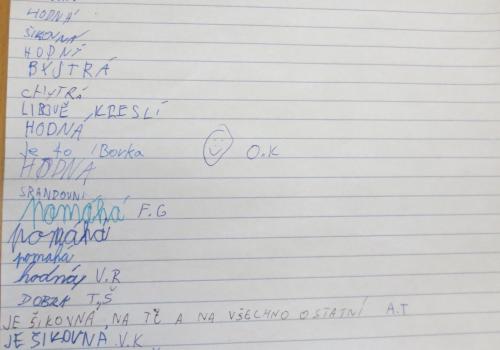 HODNÁ
ŠIKOVNÁ
HODNÝ
BYSTRÁ
CHYTRÁ
LIBOVĚ KRESLÍ
HODNÁ
je to Borka O.K
HODNÁ
SRANDOVNÍ
Pomáhá F.G
pomáhá
pomáhá
hodná V.R
DOBRÁ T,Š
JE ŠIKOVNÁ NA TĚ A NA VŠECHNO OSTATNÍ A.T
JE ŠIKOVNÁ V.K